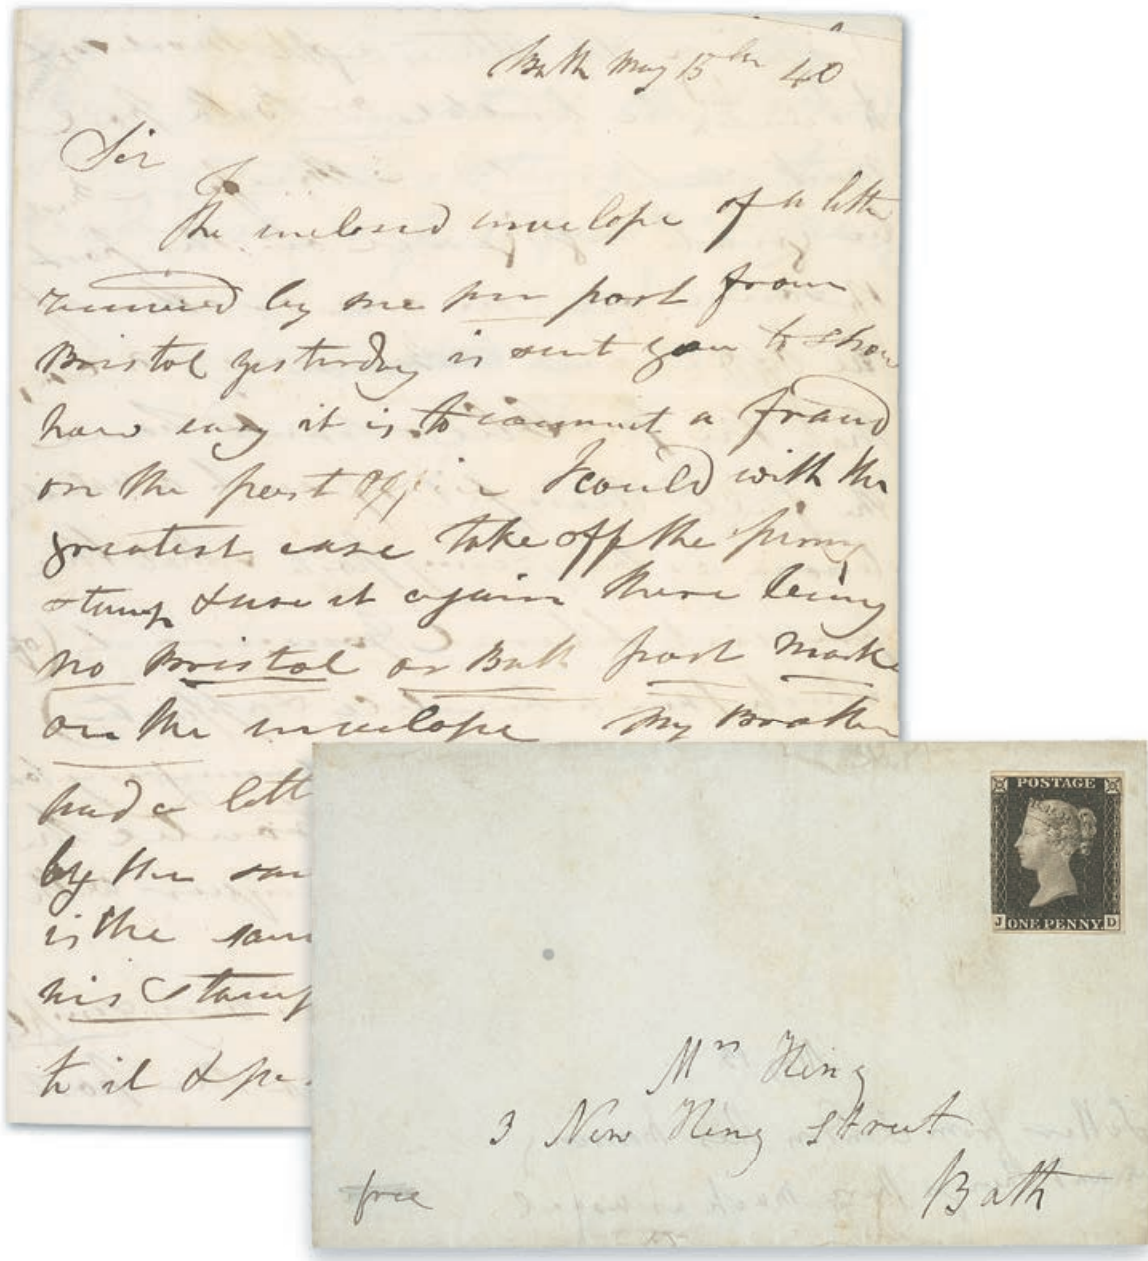 Bath May 15th 40
Sir
The inclosed envelope of a letter
received by me per post from
Bristol yesterday is sent you to show
how easy it is to commit a fraud
on the post office I could with the
greatest ease take off the penny
stamp & use it again there being
no Bristol or Bath post mark
on the envelope My Brother
had a lett
by the sa
is the sam
his stamp
to it & pa
POSTAGE
J ONE PENNY D
Mrs King
3 New King Street
Bath
free